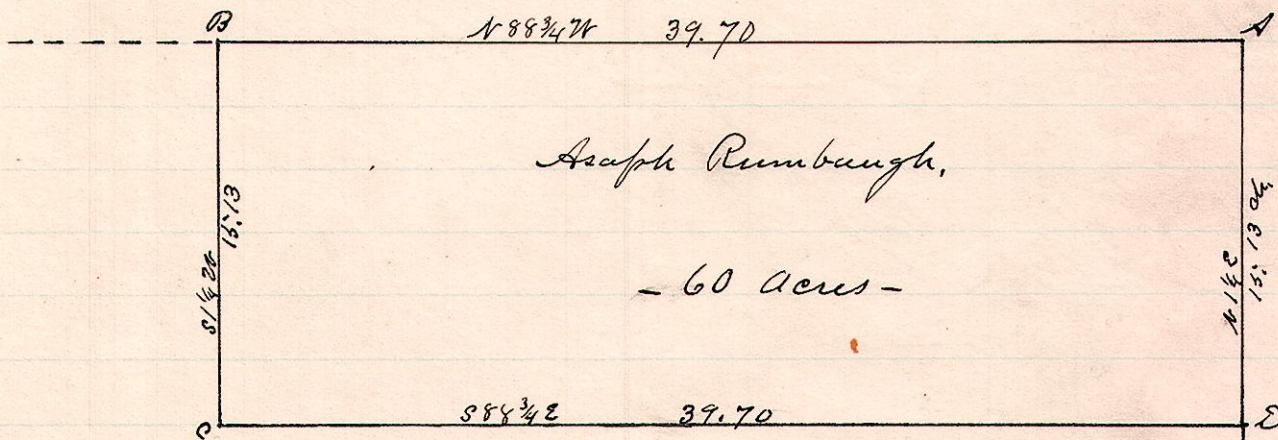 B
N 88 3/4 W 39.70
A
Asaph Rumbaugh,
- 60 Acres -
S 1 1/4 W
15.13
N 1 1/4 E
15.13
S 88 3/4 E 39.70
C